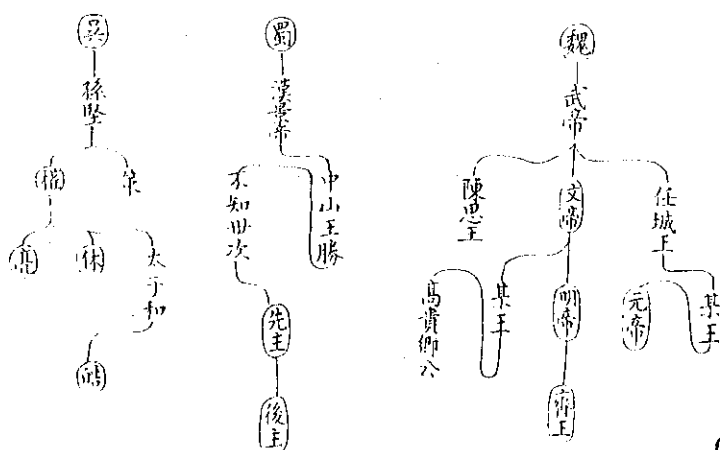 魏
武帝
任城王
文帝
陳思王
某王
元帝
明帝
某王
高貴鄉公
齊王
蜀
漢景帝
中山王勝
不知世次
先主
後主
吳
孫堅
策
權
太子和
休
亮
皓